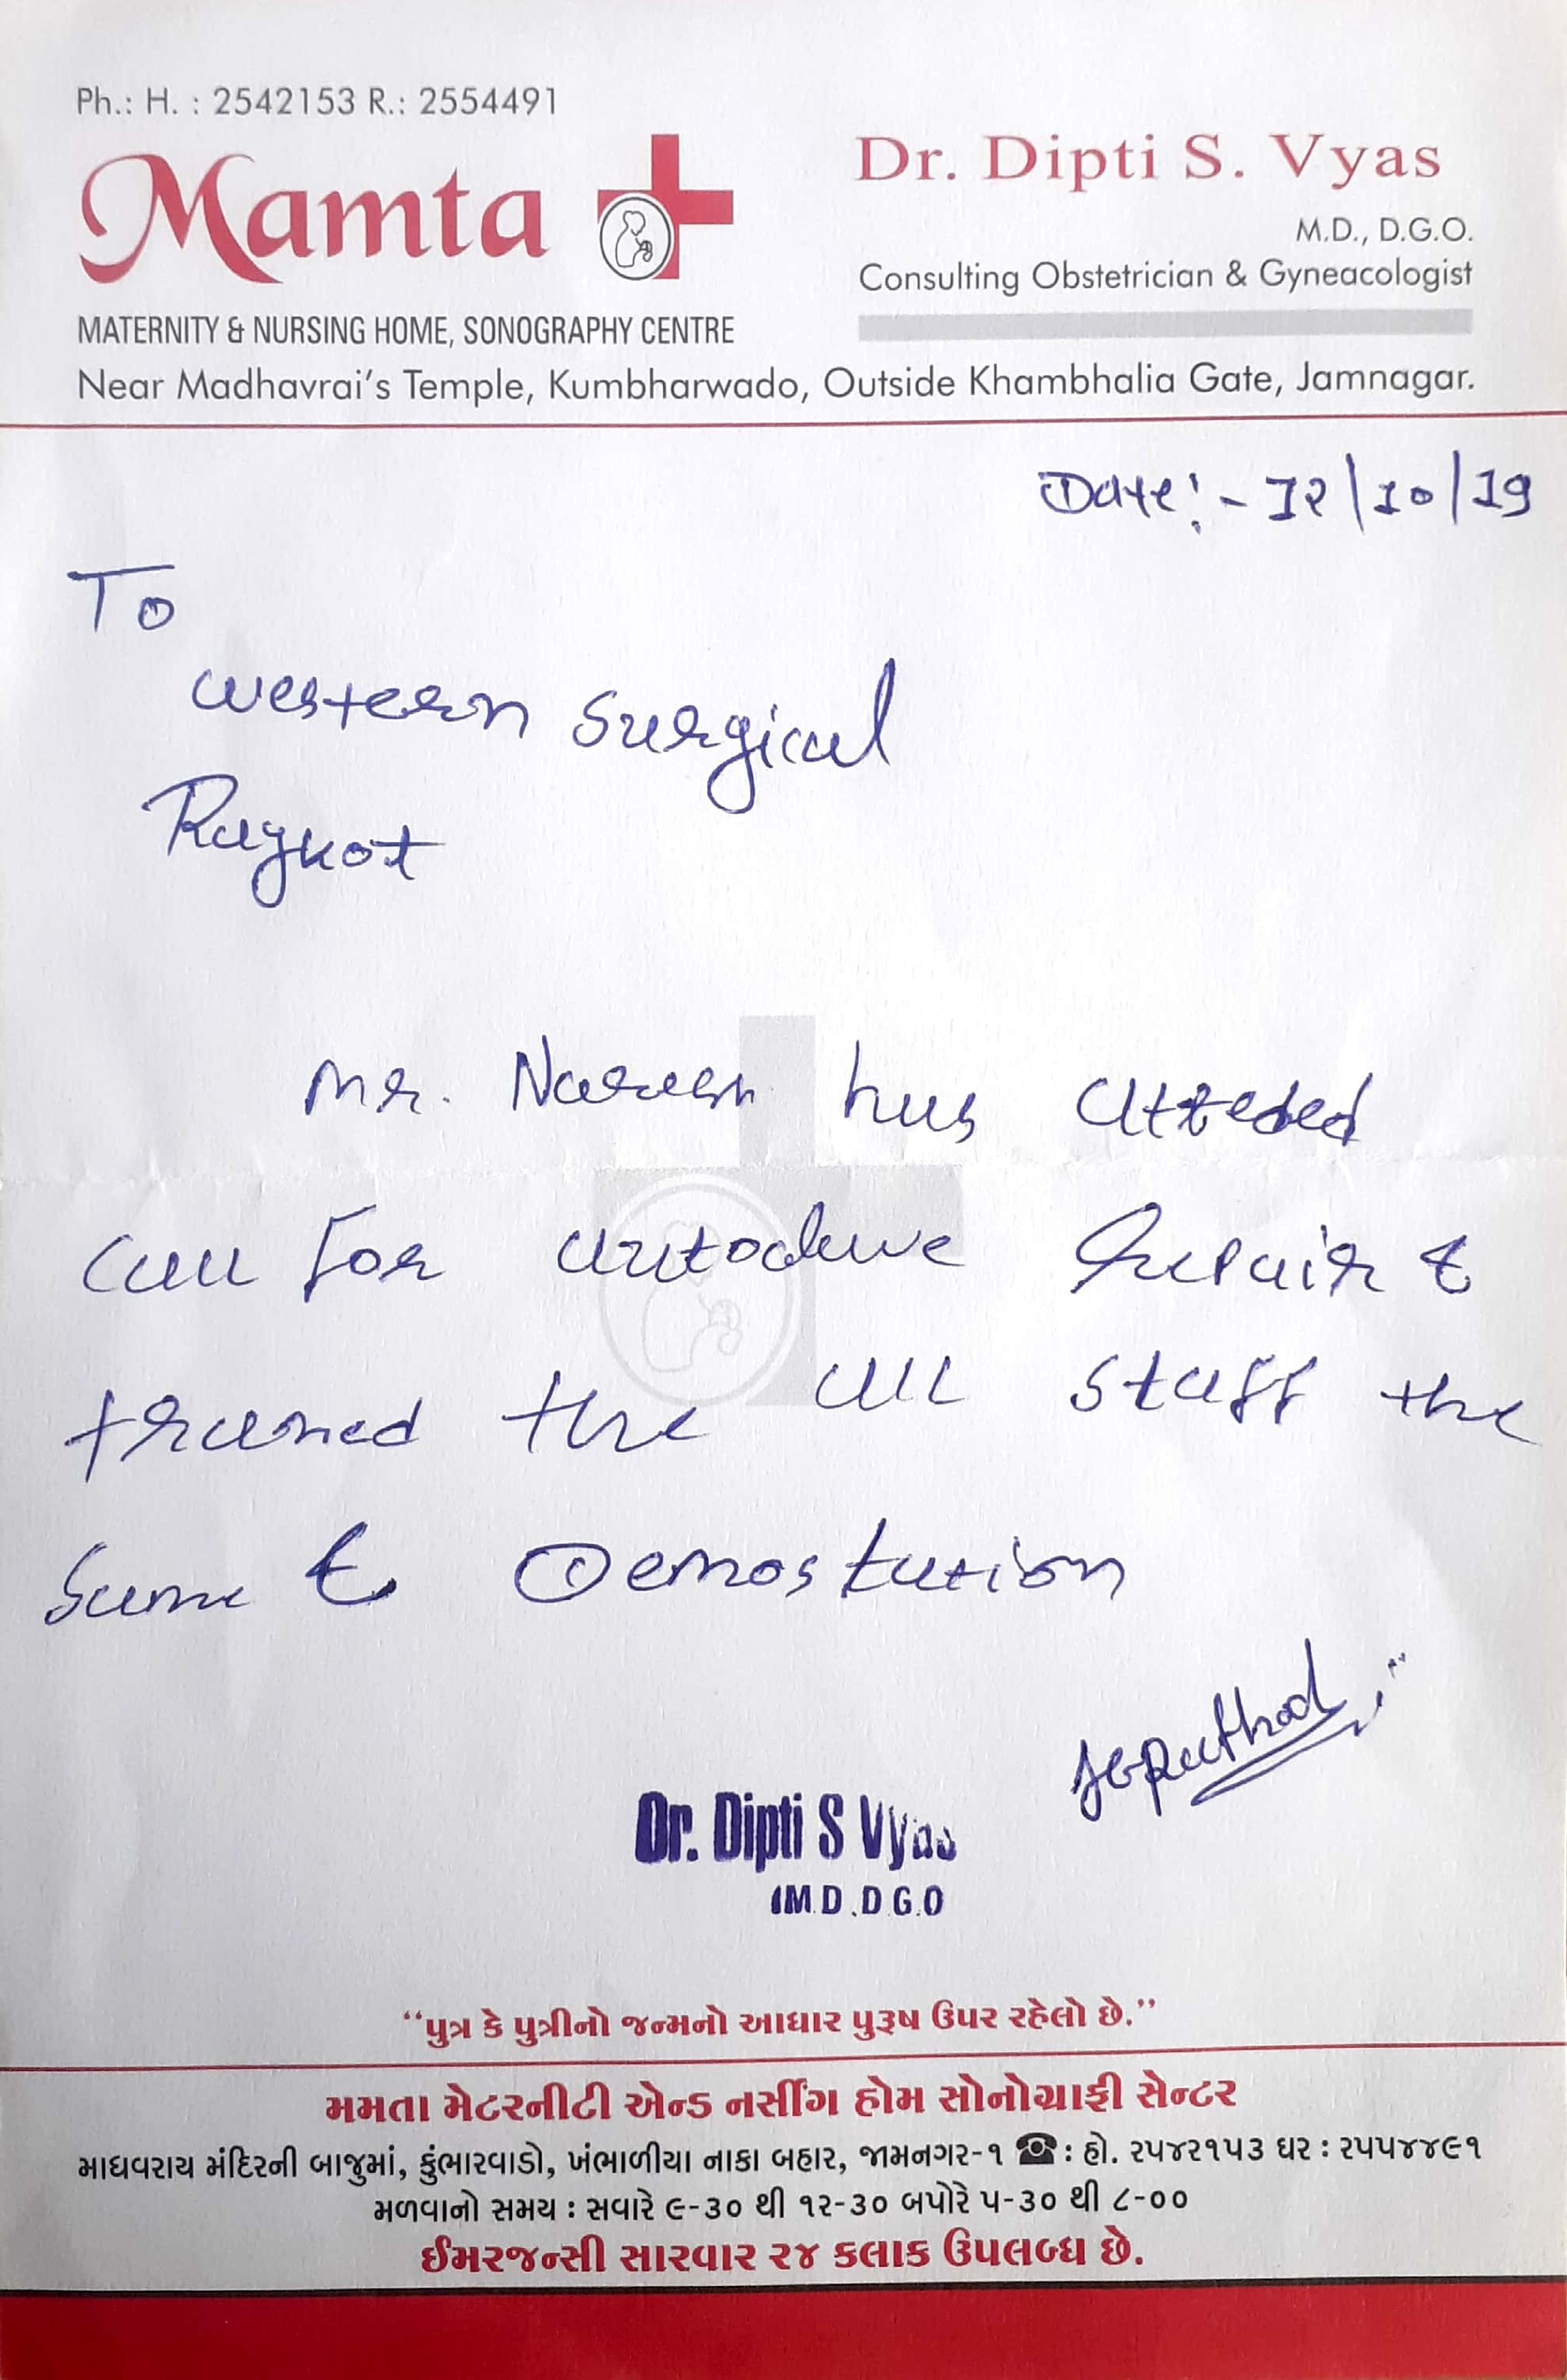 Ph.: H. : 2542153 R.: 2554491
Mamta
Dr. Dipti S. Vyas
M.D., D.G.O.
Consulting Obstetrician & Gyneacologist
MATERNITY & NURSING HOME, SONOGRAPHY CENTRE
Near Madhavrai's Temple, Kumbharwado, Outside Khambhalia Gate, Jamnagar.
Date:- 12/10/19
To
Western Surgical
Rajkot
Mr. Naresh has atteded
call for autoclave Repair &
trained the all staff the
same & Demostation
Dr. Dipti S Vyas
M.D.D.G.O
“પુત્ર કે પુત્રીનો જન્મનો આધાર પુરૂષ ઉપર રહેલો છે.”
મમતા મેટરનીટી એન્ડ નર્સીંગ હોમ સોનોગ્રાફી સેન્ટર
માધવરાય મંદિરની બાજુમાં, કુંભારવાડો, ખંભાળીયા નાકા બહાર, જામનગર-૧ ☎ : હો. ૨૫૪૨૧૫૩ ઘર : ૨૫૫૪૪૯૧
મળવાનો સમય : સવારે ૯-૩૦ થી ૧૨-૩૦ બપોરે ૫-૩૦ થી ૮-૦૦
ઈમરજન્સી સારવાર ૨૪ કલાક ઉપલબ્ધ છે.